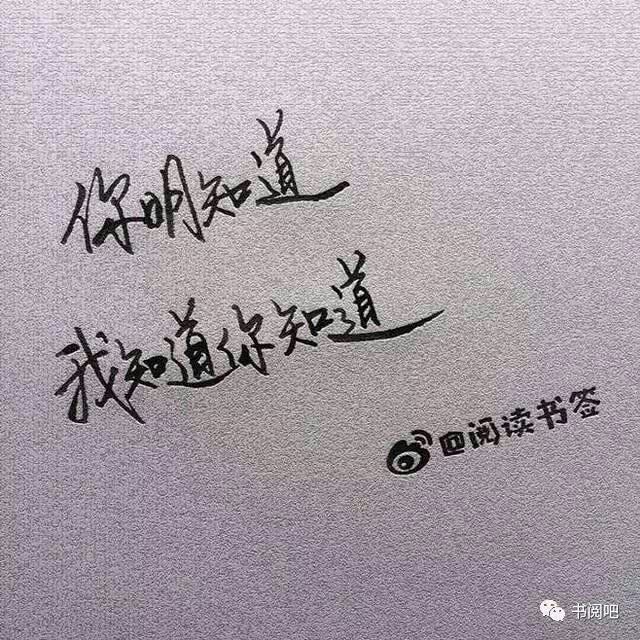 你明知道
我知道你知道
@阅读书签
书阅吧